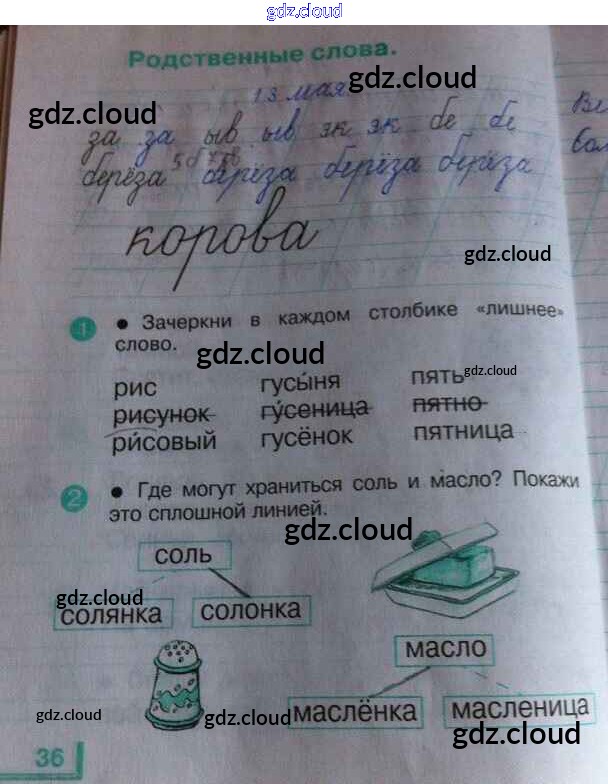 gdz.cloud
Родственные слова.
13 мая.
gdz.cloud
gdz.cloud
за за ыв ыв зк зк бе бе
берёза берёза берёза берёза
корова
gdz.cloud
1 • Зачеркни в каждом столбике «лишнее»
слово.
gdz.cloud
gdz.cloud
рис гусы́ня пять
рисунок гу́сеница пятно
ри́совый гусёнок пятница
2 • Где могут храниться соль и масло? Покажи
это сплошной линией.
gdz.cloud
соль
gdz.cloud
солянка солонка
масло
маслёнка масленица
gdz.cloud
gdz.cloud
gdz.cloud
36